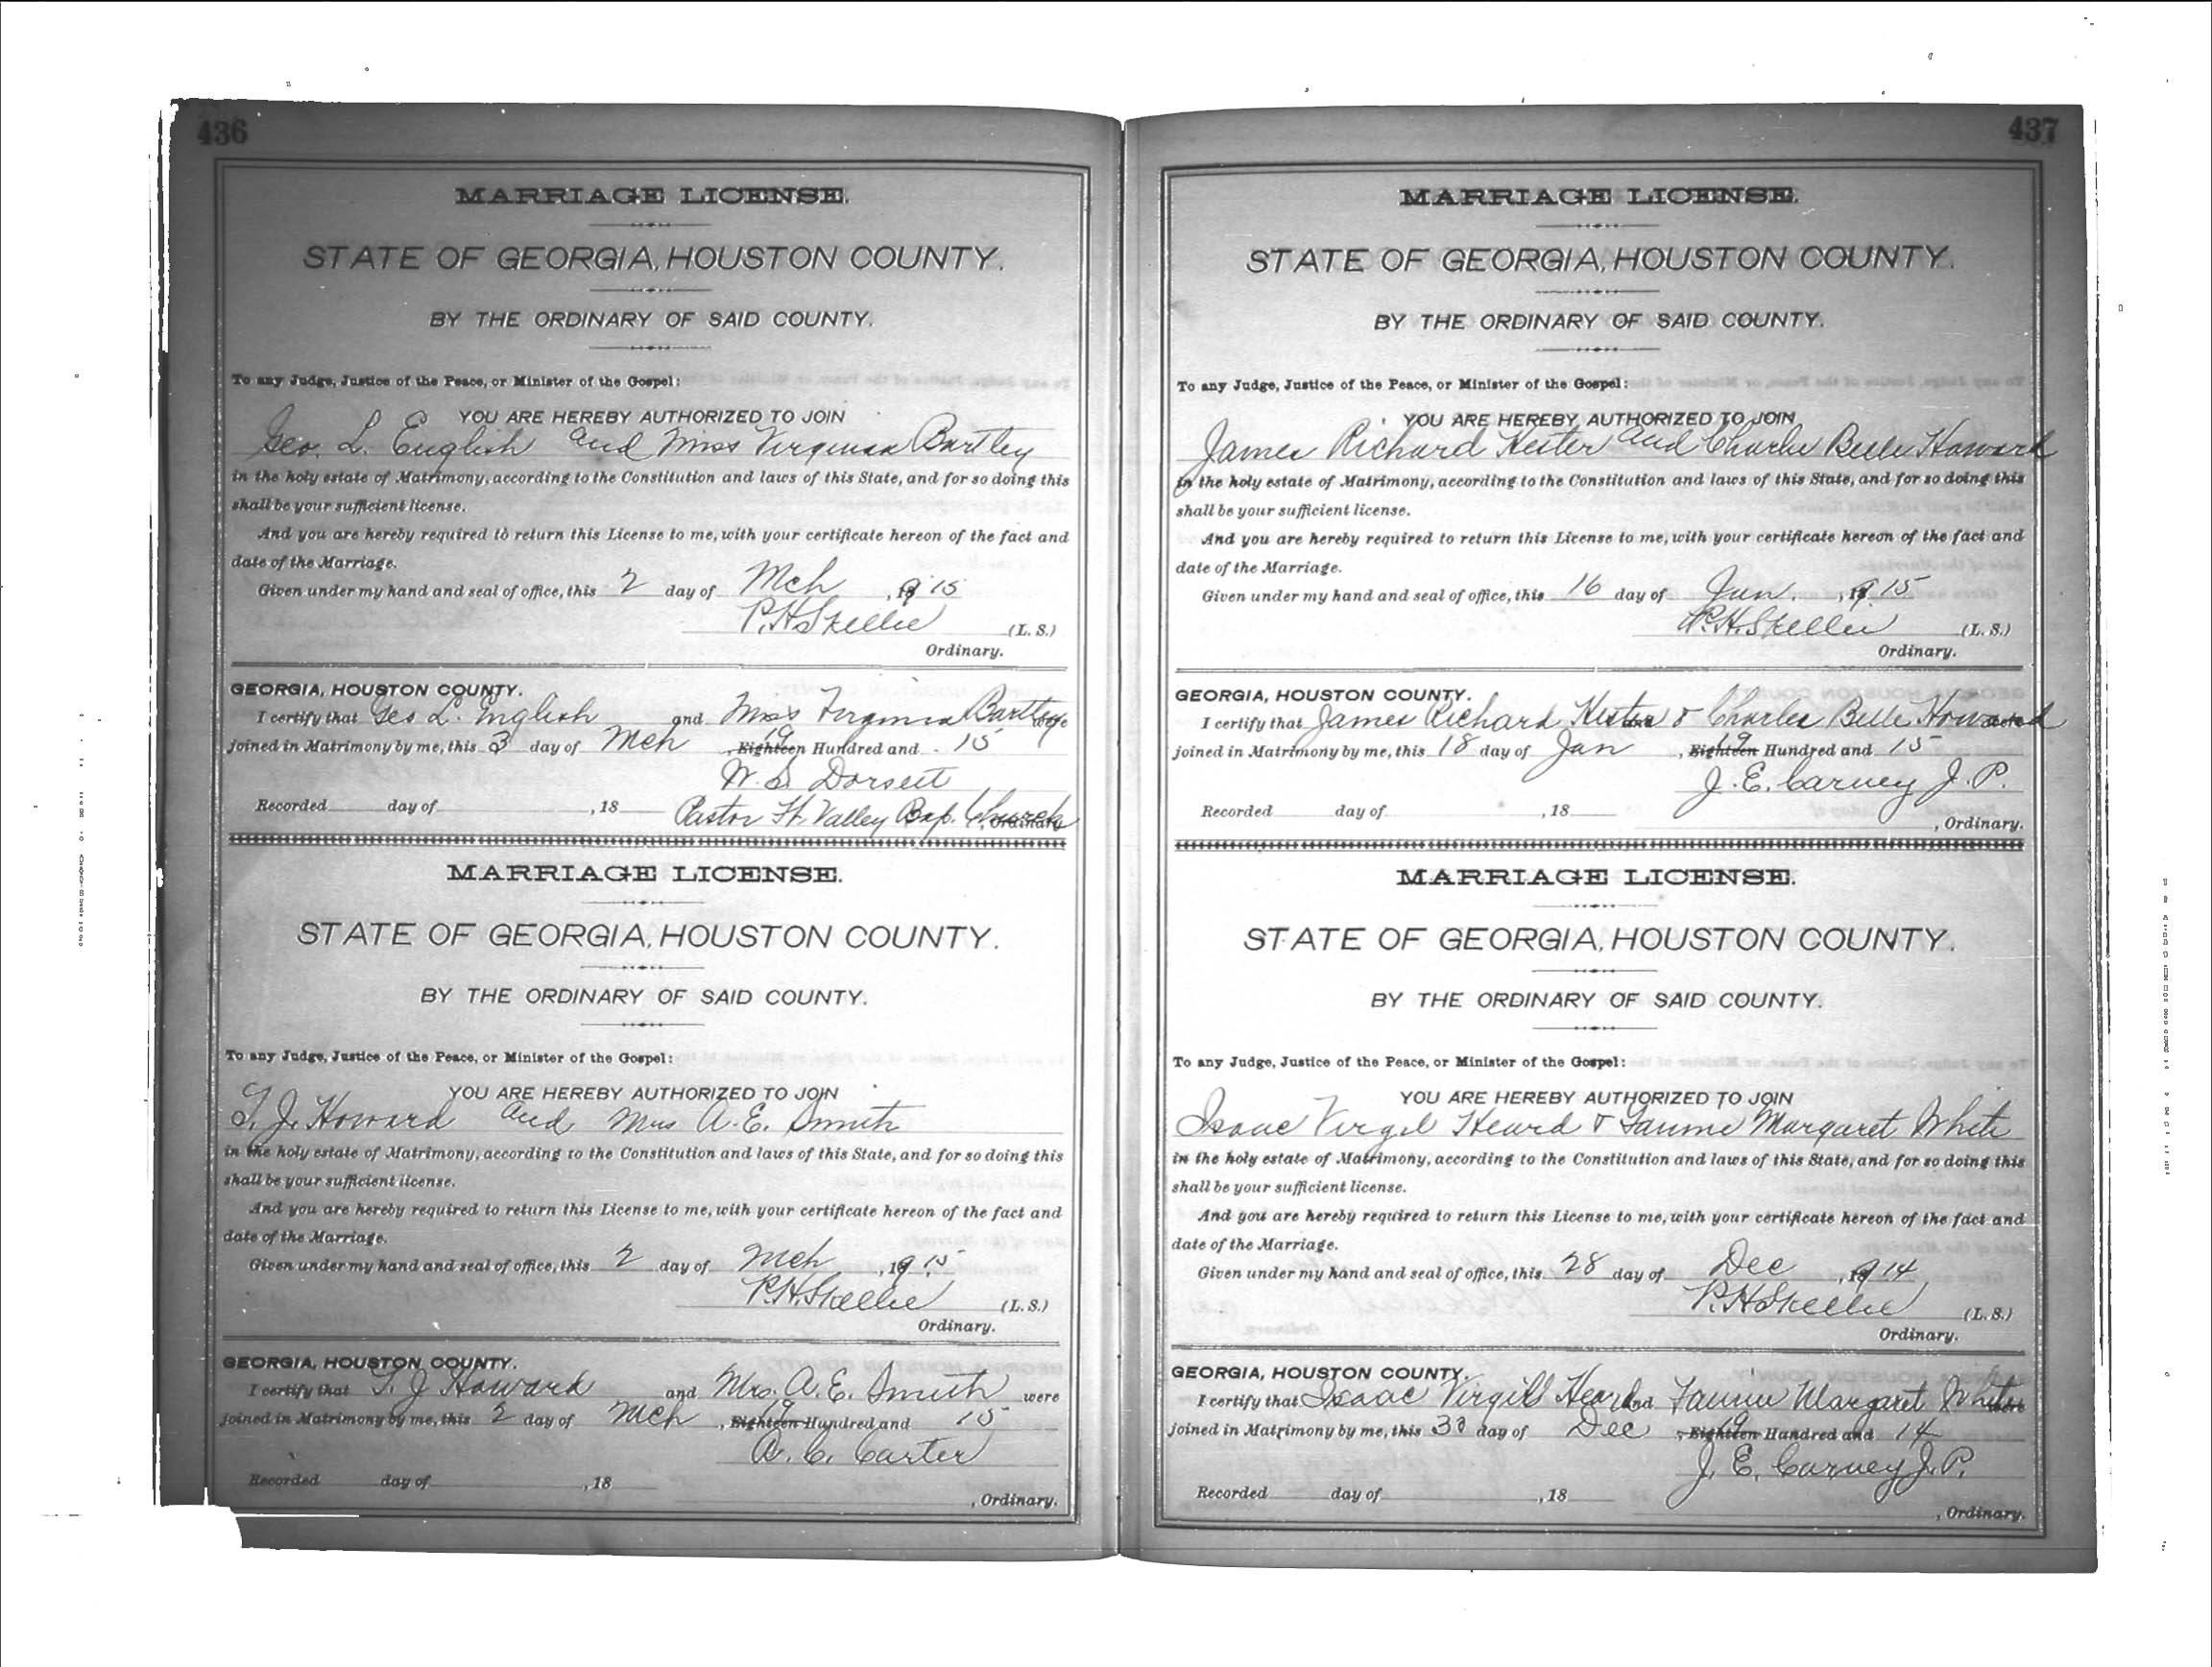 436
MARRIAGE LICENSE.
STATE OF GEORGIA, HOUSTON COUNTY.
BY THE ORDINARY OF SAID COUNTY.
To any Judge, Justice of the Peace, or Minister of the Gospel:
YOU ARE HEREBY AUTHORIZED TO JOIN
Geo. L. English and Miss Virginia Bartley
in the holy estate of Matrimony, according to the Constitution and laws of this State, and for so doing this
shall be your sufficient license.
And you are hereby required to return this License to me, with your certificate hereon of the fact and
date of the Marriage.
Given under my hand and seal of office, this 2 day of Mch, 1915
P.H. Skellie (L. S.)
Ordinary.
GEORGIA, HOUSTON COUNTY.
I certify that Geo L. English and Miss Virginia Bartley
joined in Matrimony by me, this 3 day of Mch, Eighteen 19 Hundred and 15
W. S. Dorsett
Recorded day of , 18 Pastor Ft. Valley Bap. Church, Ordinary
MARRIAGE LICENSE.
STATE OF GEORGIA, HOUSTON COUNTY.
BY THE ORDINARY OF SAID COUNTY.
To any Judge, Justice of the Peace, or Minister of the Gospel:
YOU ARE HEREBY AUTHORIZED TO JOIN
T. J. Howard and Mrs A. E. Smith
in the holy estate of Matrimony, according to the Constitution and laws of this State, and for so doing this
shall be your sufficient license.
And you are hereby required to return this License to me, with your certificate hereon of the fact and
date of the Marriage.
Given under my hand and seal of office, this 2 day of Mch, 1915
P.H. Skellie (L. S.)
Ordinary.
GEORGIA, HOUSTON COUNTY.
I certify that T. J Howard and Mrs. A. E. Smith were
joined in Matrimony by me, this 2 day of Mch, Eighteen 19 Hundred and 15
A. C. Carter
Recorded day of , 18
, Ordinary.
437
MARRIAGE LICENSE.
STATE OF GEORGIA, HOUSTON COUNTY.
BY THE ORDINARY OF SAID COUNTY.
To any Judge, Justice of the Peace, or Minister of the Gospel:
YOU ARE HEREBY AUTHORIZED TO JOIN
James Richard Hester and Charlie Belle Howard
in the holy estate of Matrimony, according to the Constitution and laws of this State, and for so doing this
shall be your sufficient license.
And you are hereby required to return this License to me, with your certificate hereon of the fact and
date of the Marriage.
Given under my hand and seal of office, this 16 day of Jan., 1915
P.H. Skellie (L. S.)
Ordinary.
GEORGIA, HOUSTON COUNTY.
I certify that James Richard Hester & Charlie Belle Howard
joined in Matrimony by me, this 18 day of Jan, Eighteen 19 Hundred and 15
J. E. Carney J. P.
Recorded day of , 18
, Ordinary.
MARRIAGE LICENSE.
STATE OF GEORGIA, HOUSTON COUNTY.
BY THE ORDINARY OF SAID COUNTY.
To any Judge, Justice of the Peace, or Minister of the Gospel:
YOU ARE HEREBY AUTHORIZED TO JOIN
Isaac Virgil Heard & Fannie Margaret White
in the holy estate of Matrimony, according to the Constitution and laws of this State, and for so doing this
shall be your sufficient license.
And you are hereby required to return this License to me, with your certificate hereon of the fact and
date of the Marriage.
Given under my hand and seal of office, this 28 day of Dec, 1914
P.H. Skellie (L. S.)
Ordinary.
GEORGIA, HOUSTON COUNTY.
I certify that Isaac Virgill Heard and Fannie Margaret White were
joined in Matrimony by me, this 30 day of Dec, Eighteen 19 Hundred and 14
J. E. Carney J. P.
Recorded day of , 18
, Ordinary.